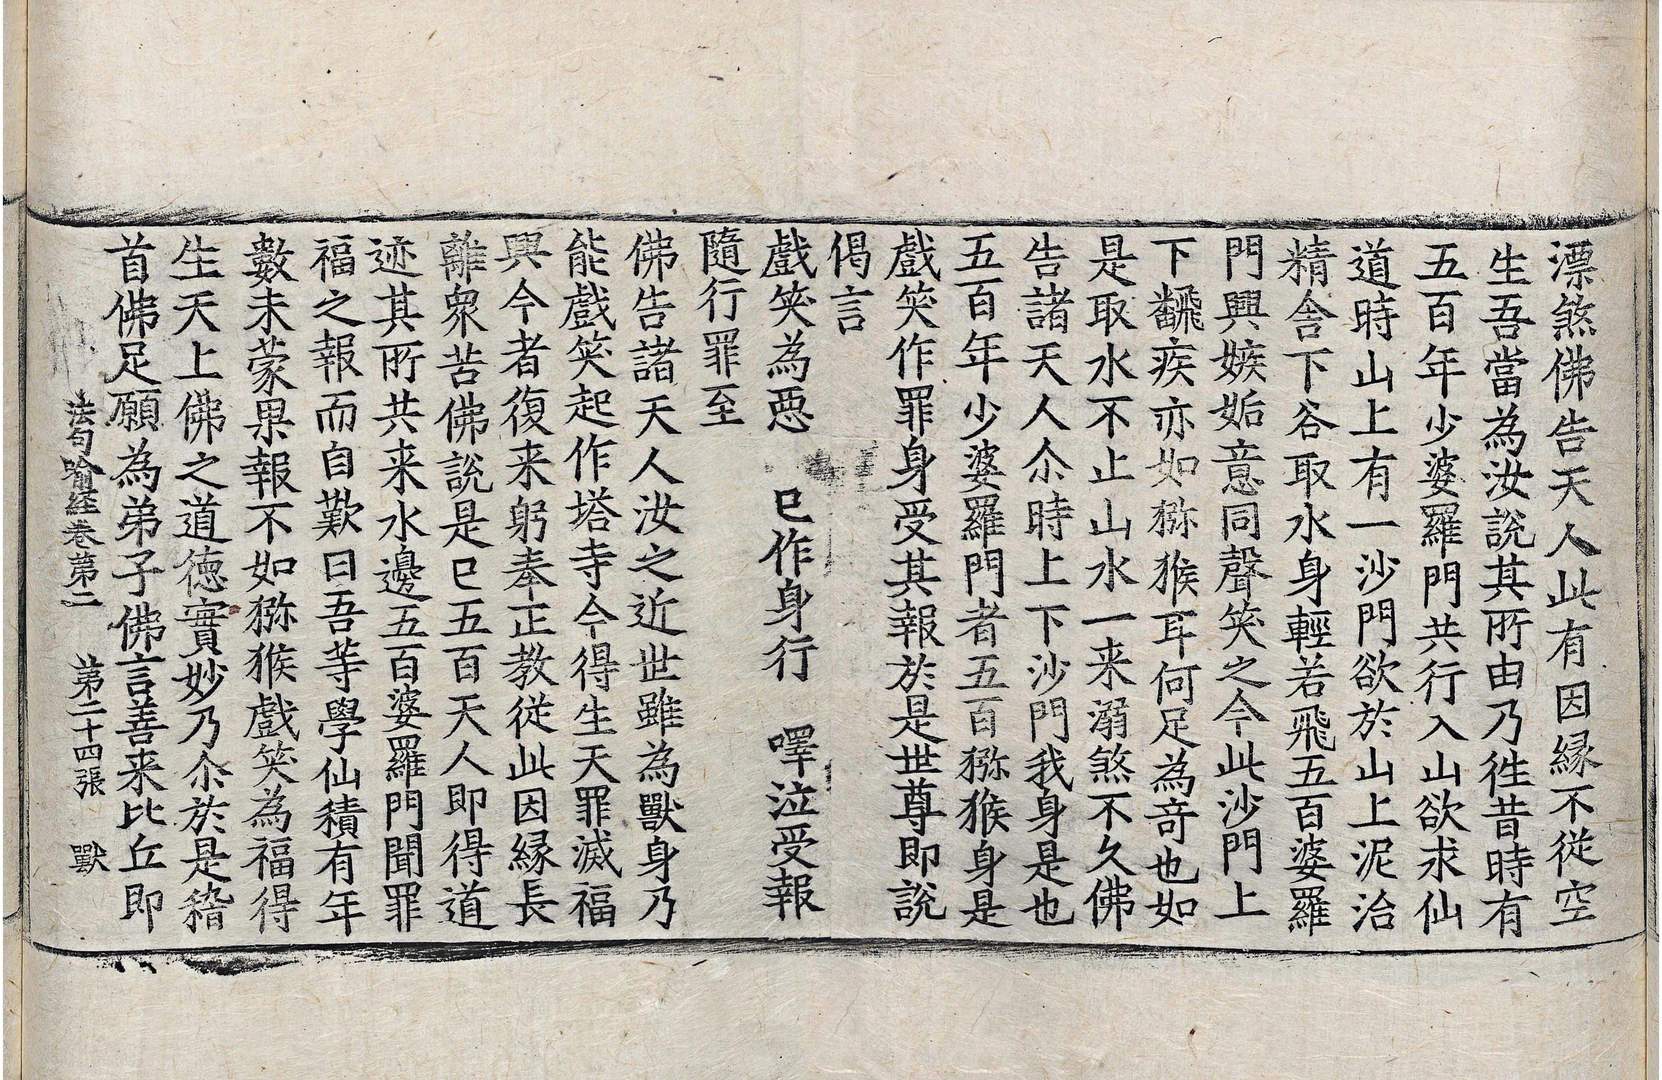 漂煞佛告天人此有因緣不從空
生吾當為汝說其所由乃徃昔時有
五百年少婆羅門共行入山欲求仙
道時山上有一沙門欲於山上泥治
精舍下谷取水身輕若飛五百婆羅
門興嫉姤意同聲笑之今此沙門上
下飜疾亦如猕猴耳何足為竒也如
是取水不止山水一来溺煞不久佛
告諸天人尒時上下沙門我身是也
五百年少婆羅門者五百猕猴身是
戲笑作罪身受其報於是世尊即說
偈言
戲笑為惡 已作身行 㘁泣受報
隨行罪至
佛告諸天人汝之近世雖為獸身乃
能戲笑起作塔寺今得生天罪滅福
興今者復来躬奉正教從此因緣長
離衆苦佛說是已五百天人即得道
迹其所共来水邊五百婆羅門聞罪
福之報而自歎曰吾等學仙積有年
數未蒙果報不如猕猴戲笑為福得
生天上佛之道德實妙乃尒於是稽
首佛足願為弟子佛言善来比丘即
法句喻経卷第二 第二十四張 獸